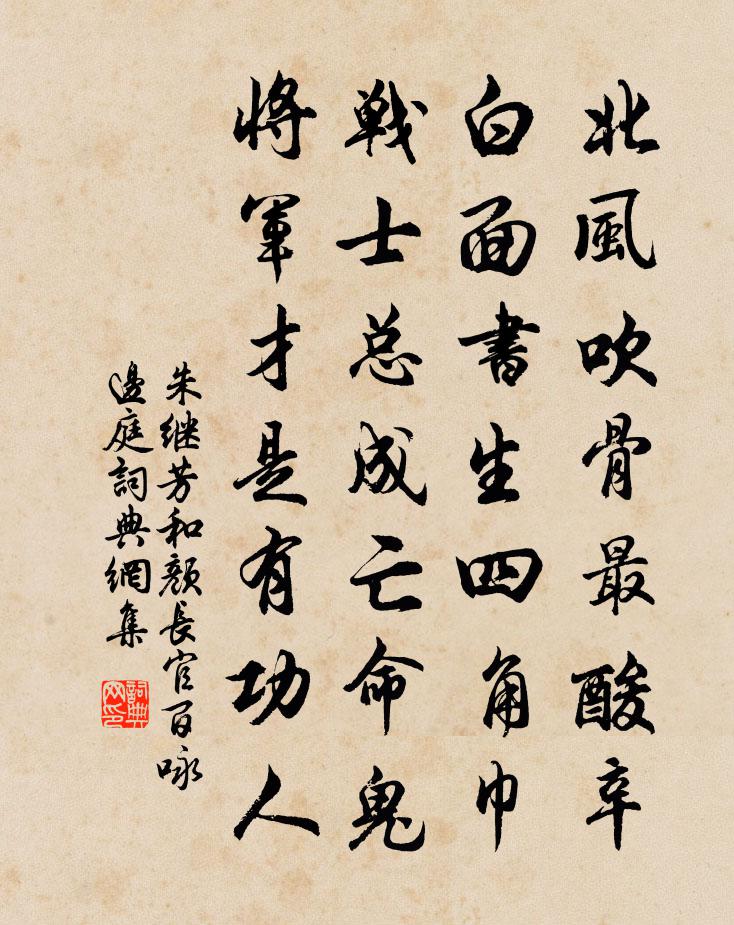 北風吹骨最酸辛
白面書生四角巾
戦士总成亡命鬼
將軍才是有功人
朱继芳和顏長官百咏
邊庭詞典網集
詞典
网印